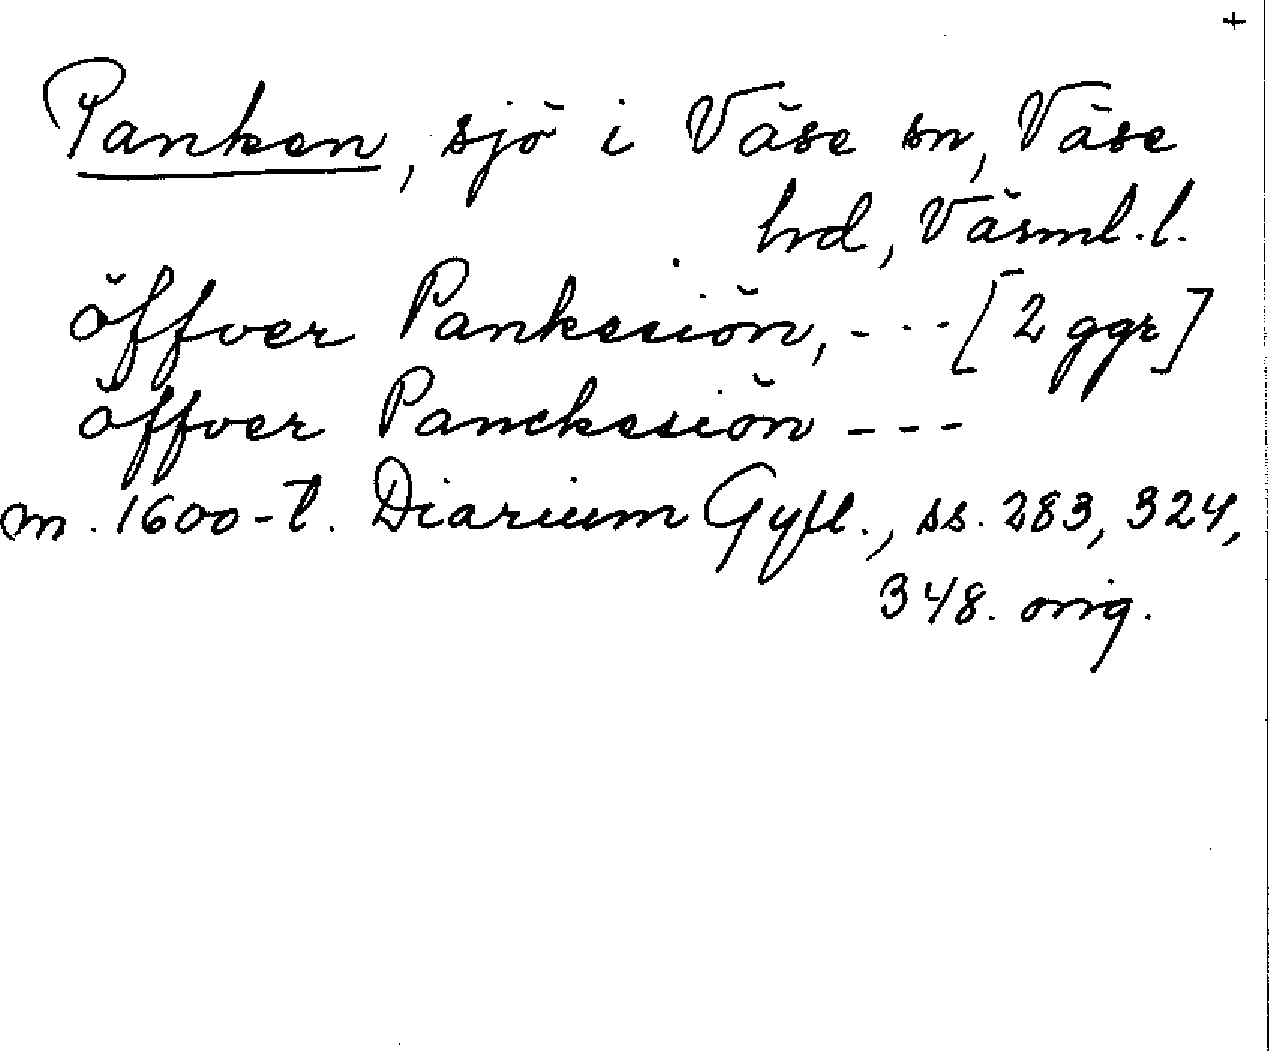 +
Panken, sjö i Väse sn, Väse
hrd, Värml. l.
öffver Pankesiön, - - - [2 ggr]
öffver Panckesiön - - -
m. 1600-t. Diarium Gyll., ss. 283, 324,
348. orig.